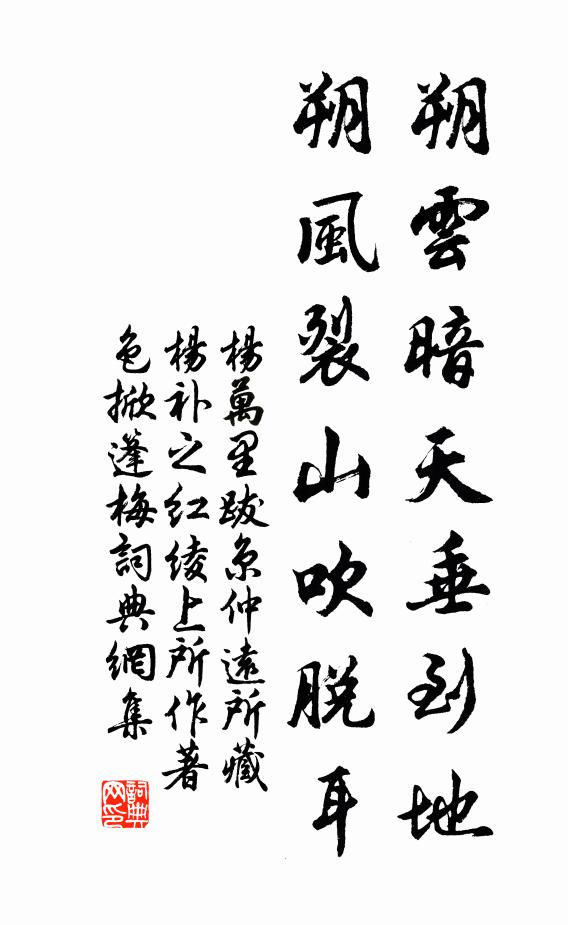 朔雲暗天垂到地
朔風裂山吹脱耳
楊萬里跋京仲遠所藏
楊补之红绫上所作著
色掀蓬梅詞典網集
詞典网印